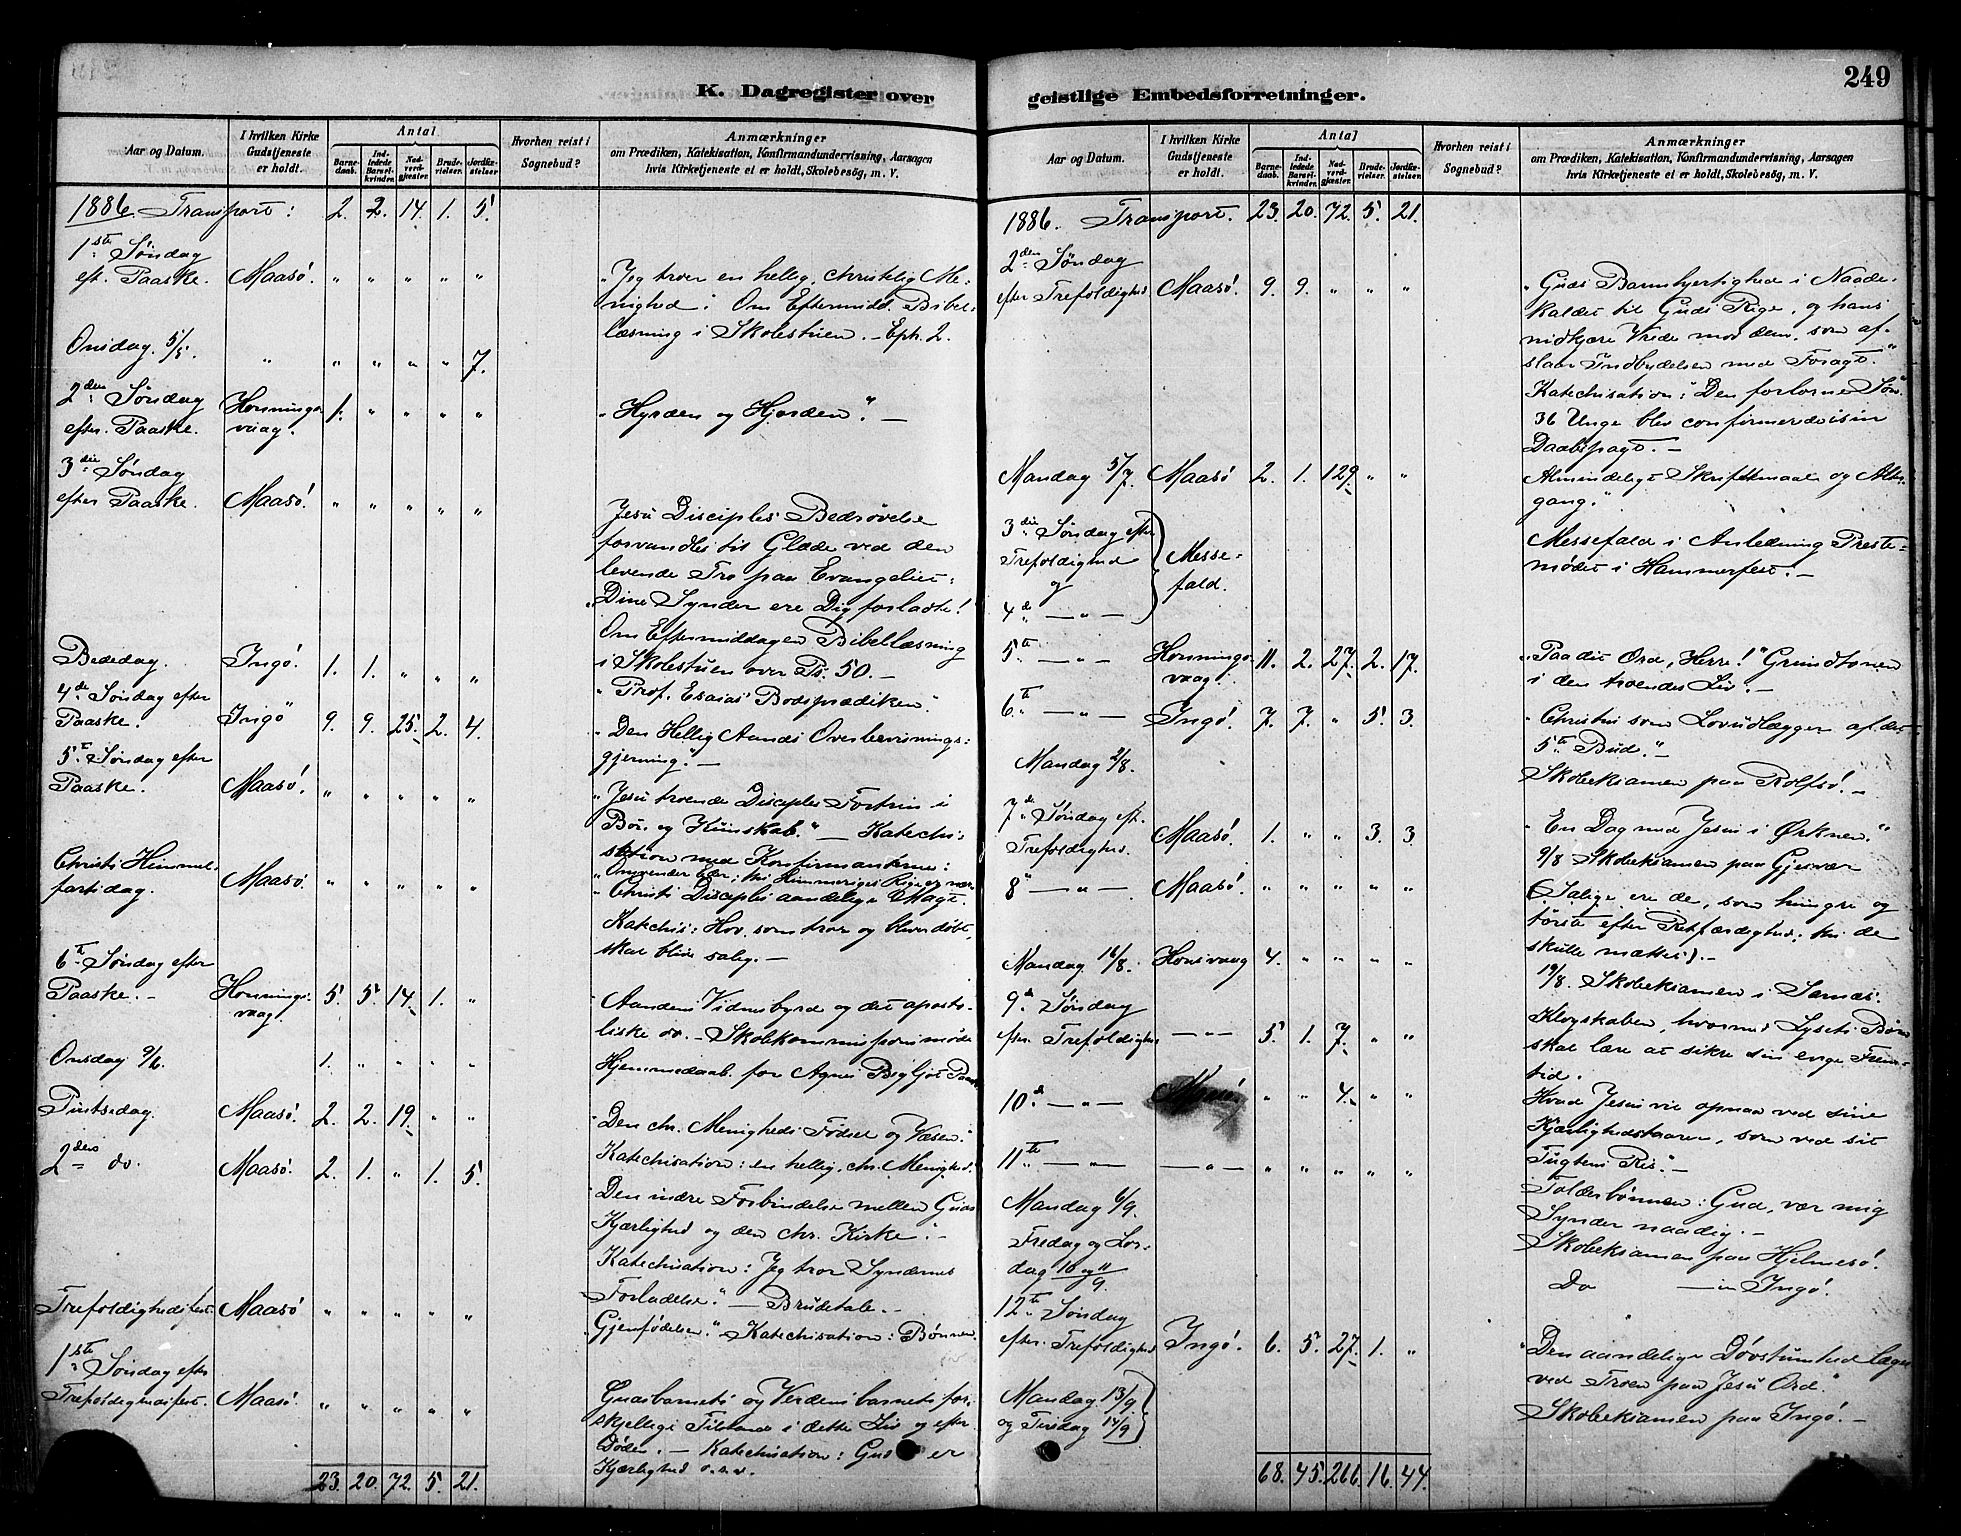 249
K. Dagregister over
geistlige Embedsforretninger.
Aar og Datum.
I hvilken Kirke
Gudstjeneste
er holdt.
Antal
Barne-
daab.
Ind-
ledede
Barsel-
kvinder.
Nad-
verd-
gjester.
Brude-
vielser.
Jordfæ-
stelser
Hvorhen reist i
Sognebud?
Anmærkninger
om Prædiken, Katekisation, Konfirmandundervisning, Aarsagen
hvis Kirketjeneste ei er holdt, Skolebesøg, m. V.
1886. Transport: 2. 2. 14. 1. 5.
1ste Søndag
eft. Paaske. Maasö. " " " " "
"Jeg troer en hellig, christelig Me-
nighed". Om Eftermidd. Bibel-
læsning i Skolestuen. - Eph. 2.
Onsdag 5/5. " " " " " 7.
2den Søndag
efter Paaske. Honnings-
vaag. 1. " " " "
"Hyrden og Hjorden". -
3die Søndag
efter Paaske. Maasö. " " " " "
Jesu Disciples Bedrøvelse
forvandles til Glæde ved den
levende Tro paa Evangeliet:
"Dine Synder ere Dig forladte!
Om Eftermiddagen Bibellæsning
i Skolestuen over Ps. 50. -
Bededag. Ingö. 1. 1. " " "
"Prof. Esaias' Bodsprædiken".
4de Søndag efter
Paaske. Ingö 9. 9. 25. 2. 4.
"Den Hellig Aands Overbevisnings-
gjerning". -
5te Søndag efter
Paaske. Maasö. " " " " "
"Jesu troende Disciples Fortrin i
Bön og Kundskab." - Katechi-
sation med Konfirmanterne:
"Omvender Eder; thi Himmeriges Rige er nær
Christi Himmel-
fartsdag. Maasö. " " " " "
"Christi Disciples aandelige Magt.
Katechis: Hvo som tror og bliver døbt,
skal blive salig. -
6te Søndag efter
Paaske. - Honnings-
vaag. 5. 5. 14. 1. "
"Aandens Vidnesbyrd og det aposto-
liske do. - Skolekommissionsmøde
Onsdag 9/6. 1. " " " "
Hjemmedaab for Agnes Bigljot
Pintsedag. Maasö. 2. 2. 19. " "
"Den chr. Menigheds Fødsel og Væsen."
Katechisation: en hellig, chr. Menighed.
2den do. Maasö. 2. 1. " 1. 5.
"Den indre Forbindelse mellem Guds
Kjærlighed og den chr. Kirke". -
Katechisation: Jeg tror Syndernes
Forladelse." - Brudetale. -
Trefoldighedsfest. Maasö " " " " "
"Gjenfødelsen." Katechisation: Bønnen.
1ste Søndag efter
Trefoldighedsfest. Maasö. " " " " "
Gudsbarnets og Verdensbarnets for-
skjellige Tilstande i dette Liv og efter
Døden. - Katechisation: Gud er
Kjærlighed o.s.v.
23. 20. 72. 5. 21.
Aar og Datum.
I hvilken Kirke
Gudstjeneste
er holdt.
Antal
Barne-
daab.
Ind-
ledede
Barsel-
kvinder.
Nad-
verd-
gjester.
Brude-
vielser.
Jordfæ-
stelser.
Hvorhen reist i
Sognebud?
Anmærkninger
om Prædiken, Katekisation, Konfirmandundervisning, Aarsagen
hvis Kirketjeneste ei er holdt, Skolebesøg, m. V.
1886. Transport. 23. 20. 72. 5. 21.
2den Søndag
efter Trefoldighed Maasö. 9. 9. " " "
"Guds Barmhjertighed i Naade-
kaldet til Guds Rige, og hans
nidkjære Vrede mod dem, som af-
slaar Indbydelsen med Foragt."
Katechisation: "Den forlorne Søn"
36 Unge blev confirmerede i sin
Daabspagt. -
Mandag 5/7. Maasö 2. 1. 129. " "
Almindeligt Skriftemaal og Alter-
gang."
3die Søndag efter
Trefoldighed
og
4de - " -
Messe-
fald.
Messefald i Anledning Preste-
mødet i Hammerfest. -
5te - " - Honnings-
vaag. 11. 2. 27. 2. 17.
"Paa dit Ord, Herre!" Grundtonen
i den troendes Liv. -
6te - " - Ingö. 7. 7. " 5. 3.
"Christus som Lovudlægger af det
5te Bud." -
Mandag 2/8.
Skoleeksamen paa Rolfsö. -
7de Søndag eft.
Trefoldighed. Maasö. 1. " " 3. 3
"En Dag med Jesu i Ørkenen."
9/8 Skoleeksamen paa Gjesvær
8de - " - Maasö. " " " " "
(Salige ere de, som hungre og
tørste efter Retfærdighed; thi de
skulle mættes). -
Mandag 16/8. Honsvaag 4. " " " "
19/8. Skoleeksamen i Sarnæs.
9de Søndag
efter Trefoldighed - " - 5. 1. 7. " "
Klogskaben, hvormed Lysets Børn
skal lære at sikre sin evige Frem-
tid.
10de - " - Maasö " " 4. " "
Hvad Jesus vil opnaa ved sine
Kjærlighedstaarer, som ved sit
Tugtens Ris." -
11te - " - - " - " " " " "
Tolderbønnen: Gud, vær mig
Synder naadig. -
Mandag 6/9.
Skoleeksamen paa Hjelmesö.
Fredag og Lør-
dag 10 og 11/9.
Do - " - Ingö.
12te Søndag
efter Trefoldighed Ingö. 6. 5. 27. 1. "
"Den aandelige Døvstumhed læges
ved Troen paa Jesu Ord."
Mandag 13/9.
og Tirsdag 14/9
Skoleeksamen paa Ingö. -
68. 45. 266. 16. 44.